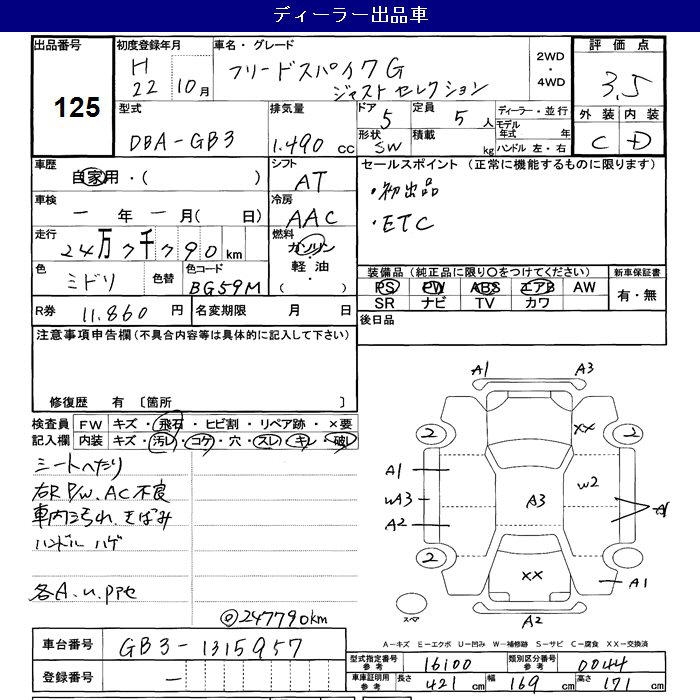 ディーラー出品車
出品番号
125
初度登録年月
H
22 10月
車名・グレード
フリードスパイク G
ジャストセレクション
2WD
・
4WD
評価点
3.5
外装 内装
C D
型式
DBA-GB3
排気量
1.490 cc
ドア
5
定員
5 人
形状
SW
積載
kg
ディーラー・並行
モデル年式 年
ハンドル 左・右
車歴
自家用・( )
シフト
AT
セールスポイント (正常に機能するものに限ります)
・初出品
・ETC
車検
ー 年 ー 月( 日)
冷房
AAC
走行
24万7千790km
燃料
ガソリン
・
軽油
・
( )
色
ミドリ
色替
色コード
BG59M
装備品 (純正品に限り○をつけてください)
PS PW ABS エアB AW
SR ナビ TV カワ
新車保証書
有・無
R券 11.860 円
名変期限 月 日
後日品
注意事項申告欄(不具合内容等は具体的に記入して下さい)
修復歴 有 〔箇所 〕
検査員
記入欄
FW キズ・飛石・ヒビ割・リペア跡・×要
内装 キズ・汚レ・コゲ・穴・スレ・キレ・破レ
シートへたり
右R P/W、AC不良
車内汚れ、きばみ
ハンドル ハゲ
各A.u.PPセ
◎247790km
A1 A3
2 2
XX
A1
WA3
A2
A3
W2
A1
2
XX
A1
スペア
A2
A-キズ E-エクボ U-凹み W-補修跡 S-サビ C-腐食 XX-交換済
車台番号 GB3-1315957
登録番号 ー
型式指定番号
参考
16100
類別区分番号
参考
0044
車庫証明用
参考
長さ 421 cm 幅 169 cm 高さ 171 cm